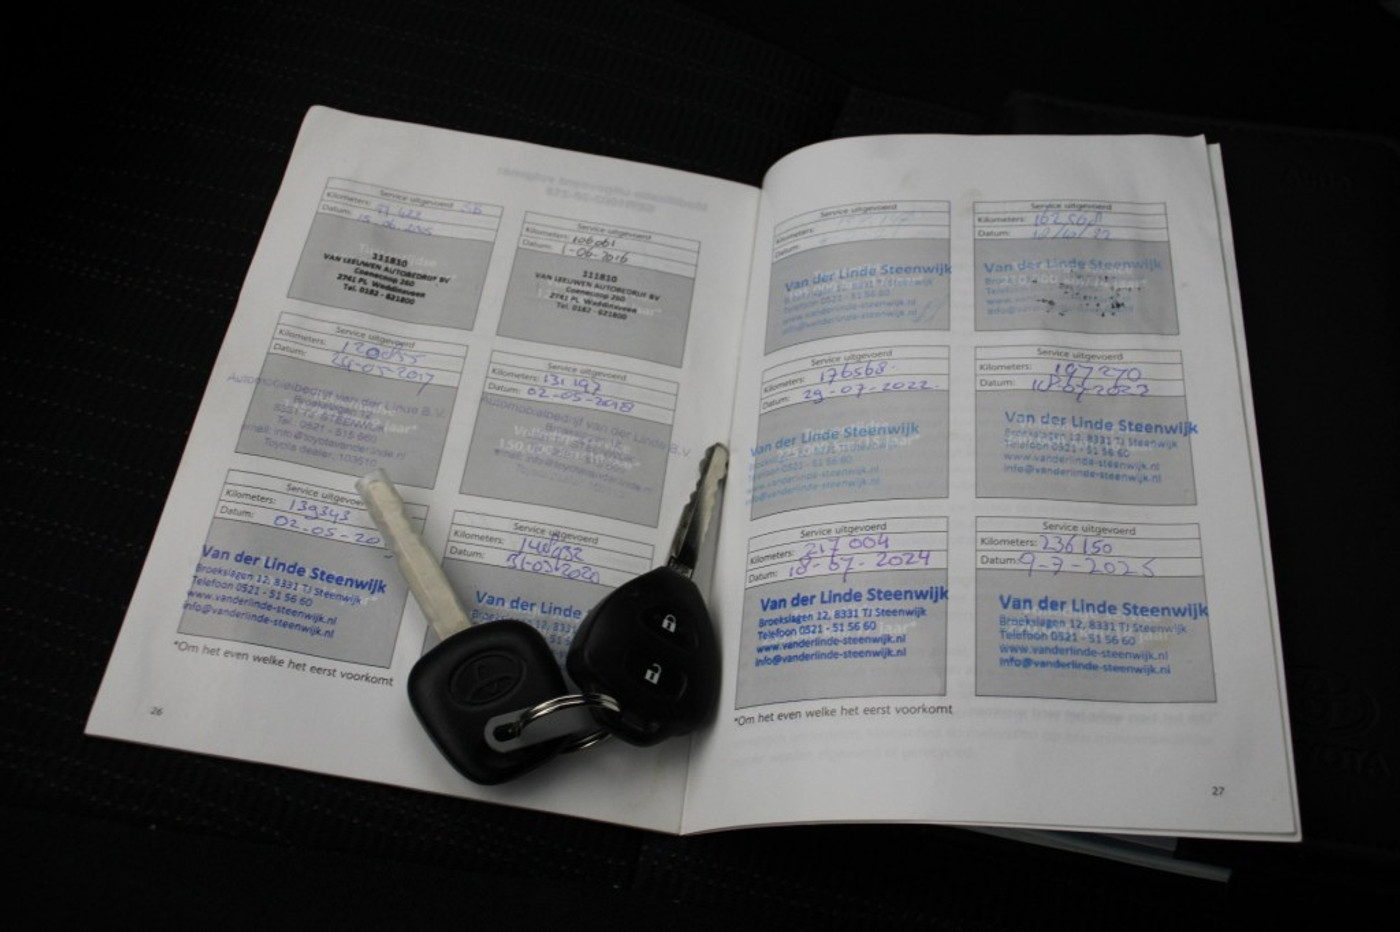 Service uitgevoerd
Kilometers:
Datum:
111810
VAN LEEUWEN AUTOBEDRIJF BV
Coenecoop 260
2761 PL Waddinxveen
Tel. 0182 - 621800
Service uitgevoerd
Kilometers: 106061
Datum: 1-06-2016
111810
VAN LEEUWEN AUTOBEDRIJF BV
Coenecoop 260
2761 PL Waddinxveen
Tel. 0182 - 621800
Service uitgevoerd
Kilometers: 120055
Datum: 24-05-2017
Automobielbedrijf van der Linde B.V.
Broekslagen 12
8331 TJ STEENWIJK
Tel.: 0521 - 515 660
email: info@toyotavanderlinde.nl
Toyota dealer: 103610
Service uitgevoerd
Kilometers: 131197
Datum: 02-05-2018
Automobielbedrijf van der Linde B.V.
Service uitgevoerd
Kilometers: 139343
Datum: 02-05-20
Van der Linde Steenwijk
Broekslagen 12, 8331 TJ Steenwijk
Telefoon 0521 - 51 56 60
www.vanderlinde-steenwijk.nl
info@vanderlinde-steenwijk.nl
Service uitgevoerd
Kilometers:
Datum: 31-03-2020
Van der Linde
*Om het even welke het eerst voorkomt
26
Service uitgevoerd
Kilometers:
Datum:
Van der Linde Steenwijk
Broekslagen 12, 8331 TJ Steenwijk
Telefoon 0521 - 51 56 60
www.vanderlinde-steenwijk.nl
info@vanderlinde-steenwijk.nl
Service uitgevoerd
Kilometers: 162568
Datum:
Van der Linde Steenwijk
Service uitgevoerd
Kilometers: 176568
Datum: 29-07-2022
Van der Linde Steenwijk
Telefoon 0521 - 51 56 60
Service uitgevoerd
Kilometers: 197270
Datum: 10-07-2023
Van der Linde Steenwijk
Broekslagen 12, 8331 TJ Steenwijk
Telefoon 0521 - 51 56 60
www.vanderlinde-steenwijk.nl
info@vanderlinde-steenwijk.nl
Service uitgevoerd
Kilometers: 217 004
Datum: 18-07-2024
Van der Linde Steenwijk
Broekslagen 12, 8331 TJ Steenwijk
Telefoon 0521 - 51 56 60
www.vanderlinde-steenwijk.nl
info@vanderlinde-steenwijk.nl
Service uitgevoerd
Kilometers: 236 150
Datum: 9-7-2025
Van der Linde Steenwijk
Broekslagen 12, 8331 TJ Steenwijk
Telefoon 0521 - 51 56 60
www.vanderlinde-steenwijk.nl
info@vanderlinde-steenwijk.nl
*Om het even welke het eerst voorkomt
27